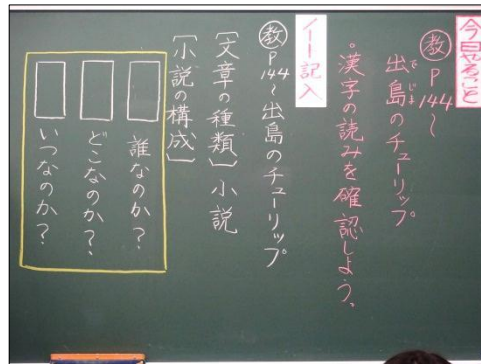 今日やること
教 P144〜
出島のチューリップ
でじま
。漢字の読みを確認しよう。
ノート記入
教 P144〜出島のチューリップ
〔文章の種類〕小説
〔小説の構成〕
誰なのか？
どこなのか？
いつなのか？